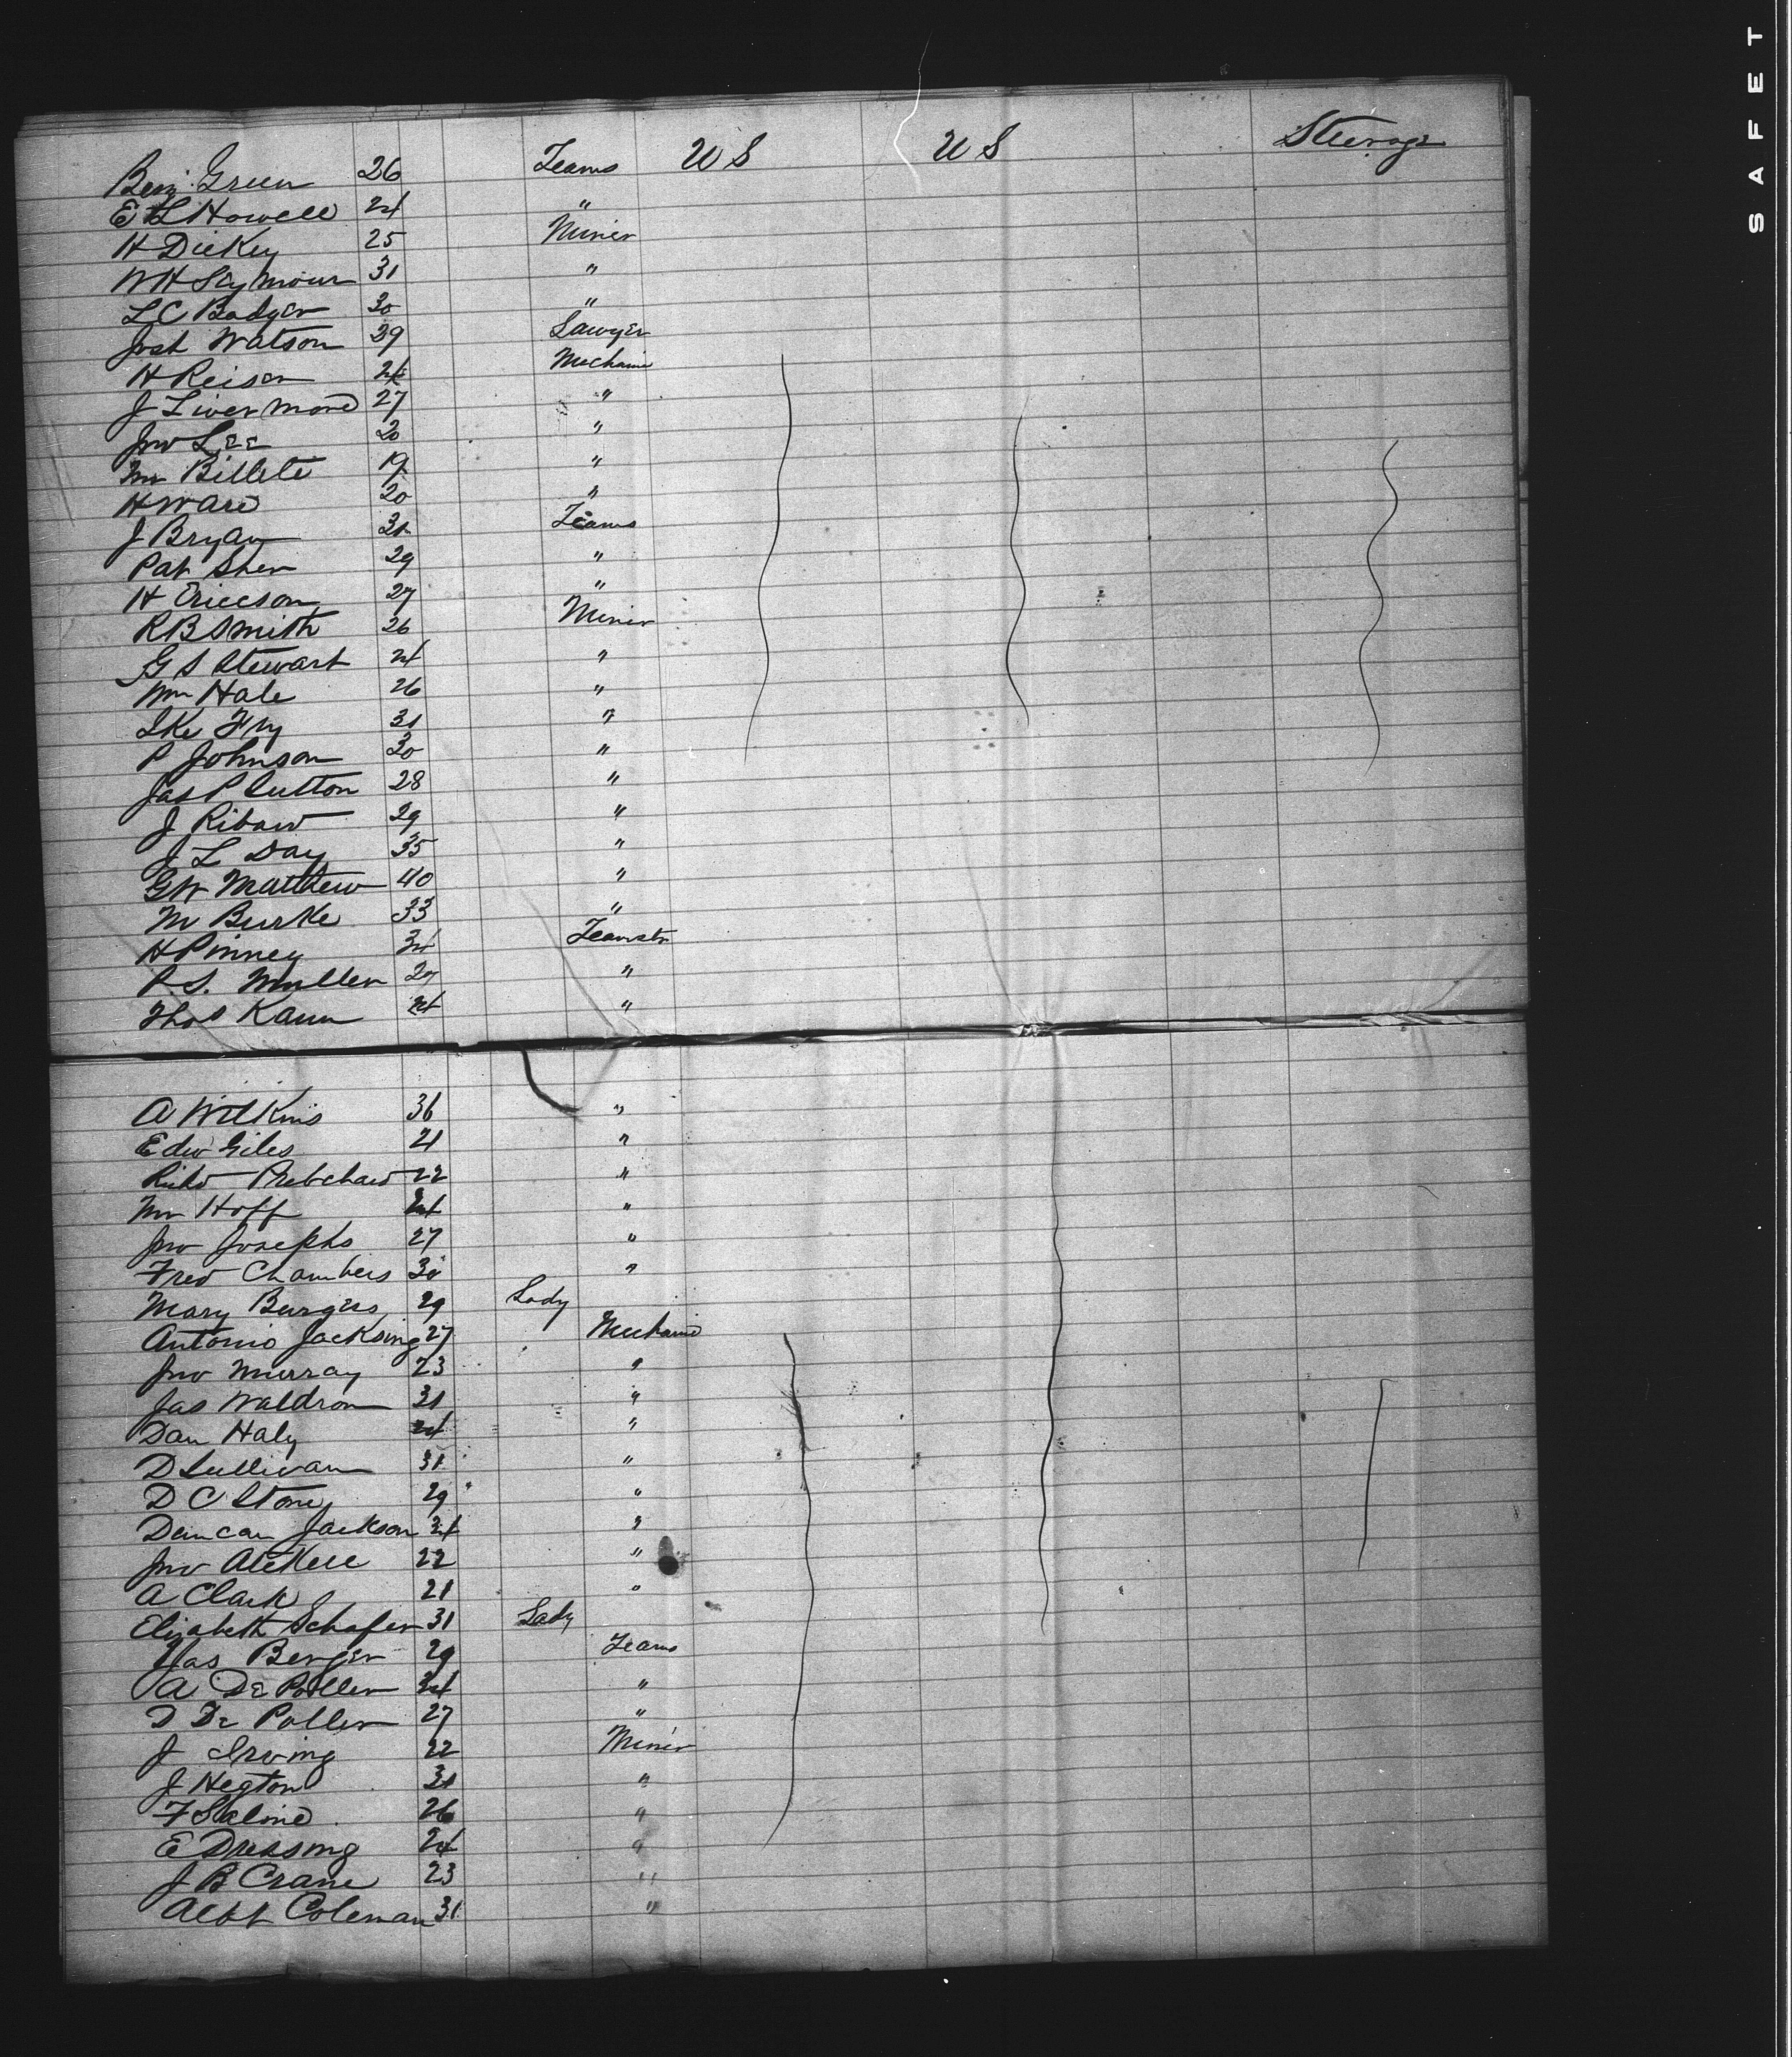 Benj Green 26 Teams U S U S Steerage
E L Howell 24 "
H Dickey 25 Miner
W H Seymour 31 "
L C Badger 30 "
Josh Watson 29 Sawyer
H Reiser 24 Mechanic
J Livermore 27 "
Jno Lee 20 "
Wm Billete 19 "
H Ware 20 "
J Bryan 31 Teams
Pat Sher 29 "
H Ericcson 27 "
R B Smith 26 Miner
G S Stewart 24 "
Wm Hale 26 "
Ike Fry 31 "
P Johnson 30 "
Jas P Sutton 28 "
J Ribaw 29 "
J L Day 35 "
G W Matthew 40 "
M Burke 33 "
H Pinney 34 Teamstr
P. S. Muller 27 "
Thos Kaun 24 "
A Wilkins 36 "
Edw Giles 21 "
Richd Pretchard 22 "
Wm Hoff 24 "
Jno Josephs 27 "
Fred Chambers 30 "
Mary Burgess 29 Lady
Antonio Jacksing 27 Mechanic
Jno Murray 23 "
Jas Waldron 31 "
Dan Haly 24 "
D Sullivan 31 "
D C Stoney 29 "
Duncan Jackson 34 "
Jno 22 "
A Clark 21 "
Elizabeth Schafer 31 Lady
Jas Berger 29 Teams
A De Poller 34 "
D De Poller 27 "
J Irving 22 Miner
J Hegton 31 "
F Saline 26 "
E Dressing 24 "
J B Crane 23 "
Albt Coleman 31 "
SAFET